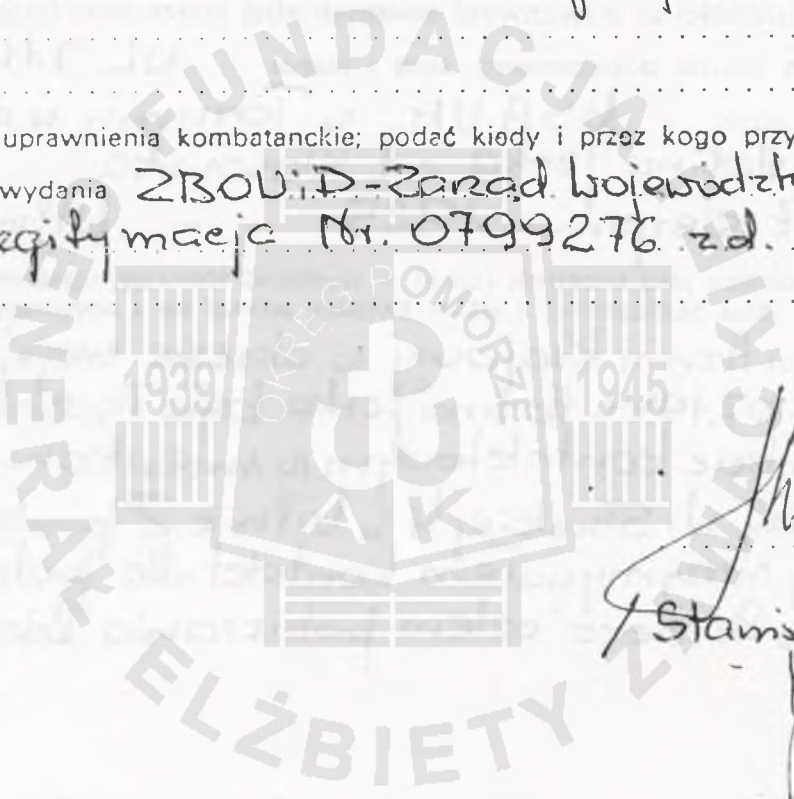 uprawnienia kombatanckie; podać kiedy i przez kogo przy
wydania ZBOWiD-Zarząd Wojewódz
egitymacja Nr. 0799276 z d.
FUNDACJA
GENERAŁ
ELŻBIETY ZAWACKIEJ
OKRĘG POMORZE
1939 1945
AK
Stanis